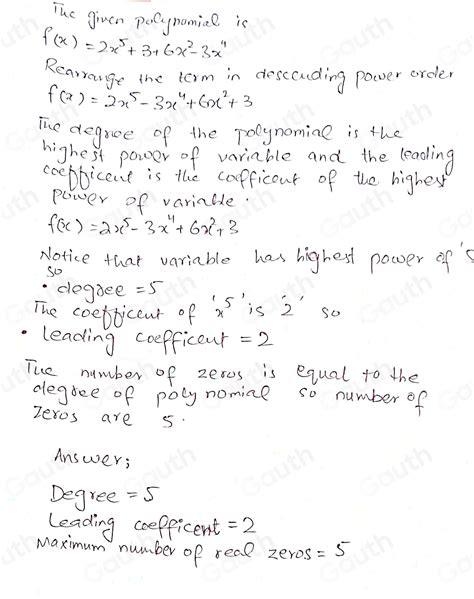 The given polynomial is
f(x) = 2x⁵ + 3 + 6x² - 3x⁴
Rearrange the term in desccuding power order
f(x) = 2x⁵ - 3x⁴ + 6x² + 3
The degree of the polynomial is the
highest power of variable and the leading
coefficeut is the cofficeut of the highest
power of variable.
f(x) = 2x⁵ - 3x⁴ + 6x² + 3
Notice that variable has highest power of '5
so
• degree = 5
The coefficeut of 'x⁵' is '2' so
• leading coefficeut = 2
The number of zeros is equal to the
degree of polynomial so number of
zeros are 5.
Answer;
Degree = 5
Leading coefficent = 2
Maximum number of real zeros = 5
Gauth